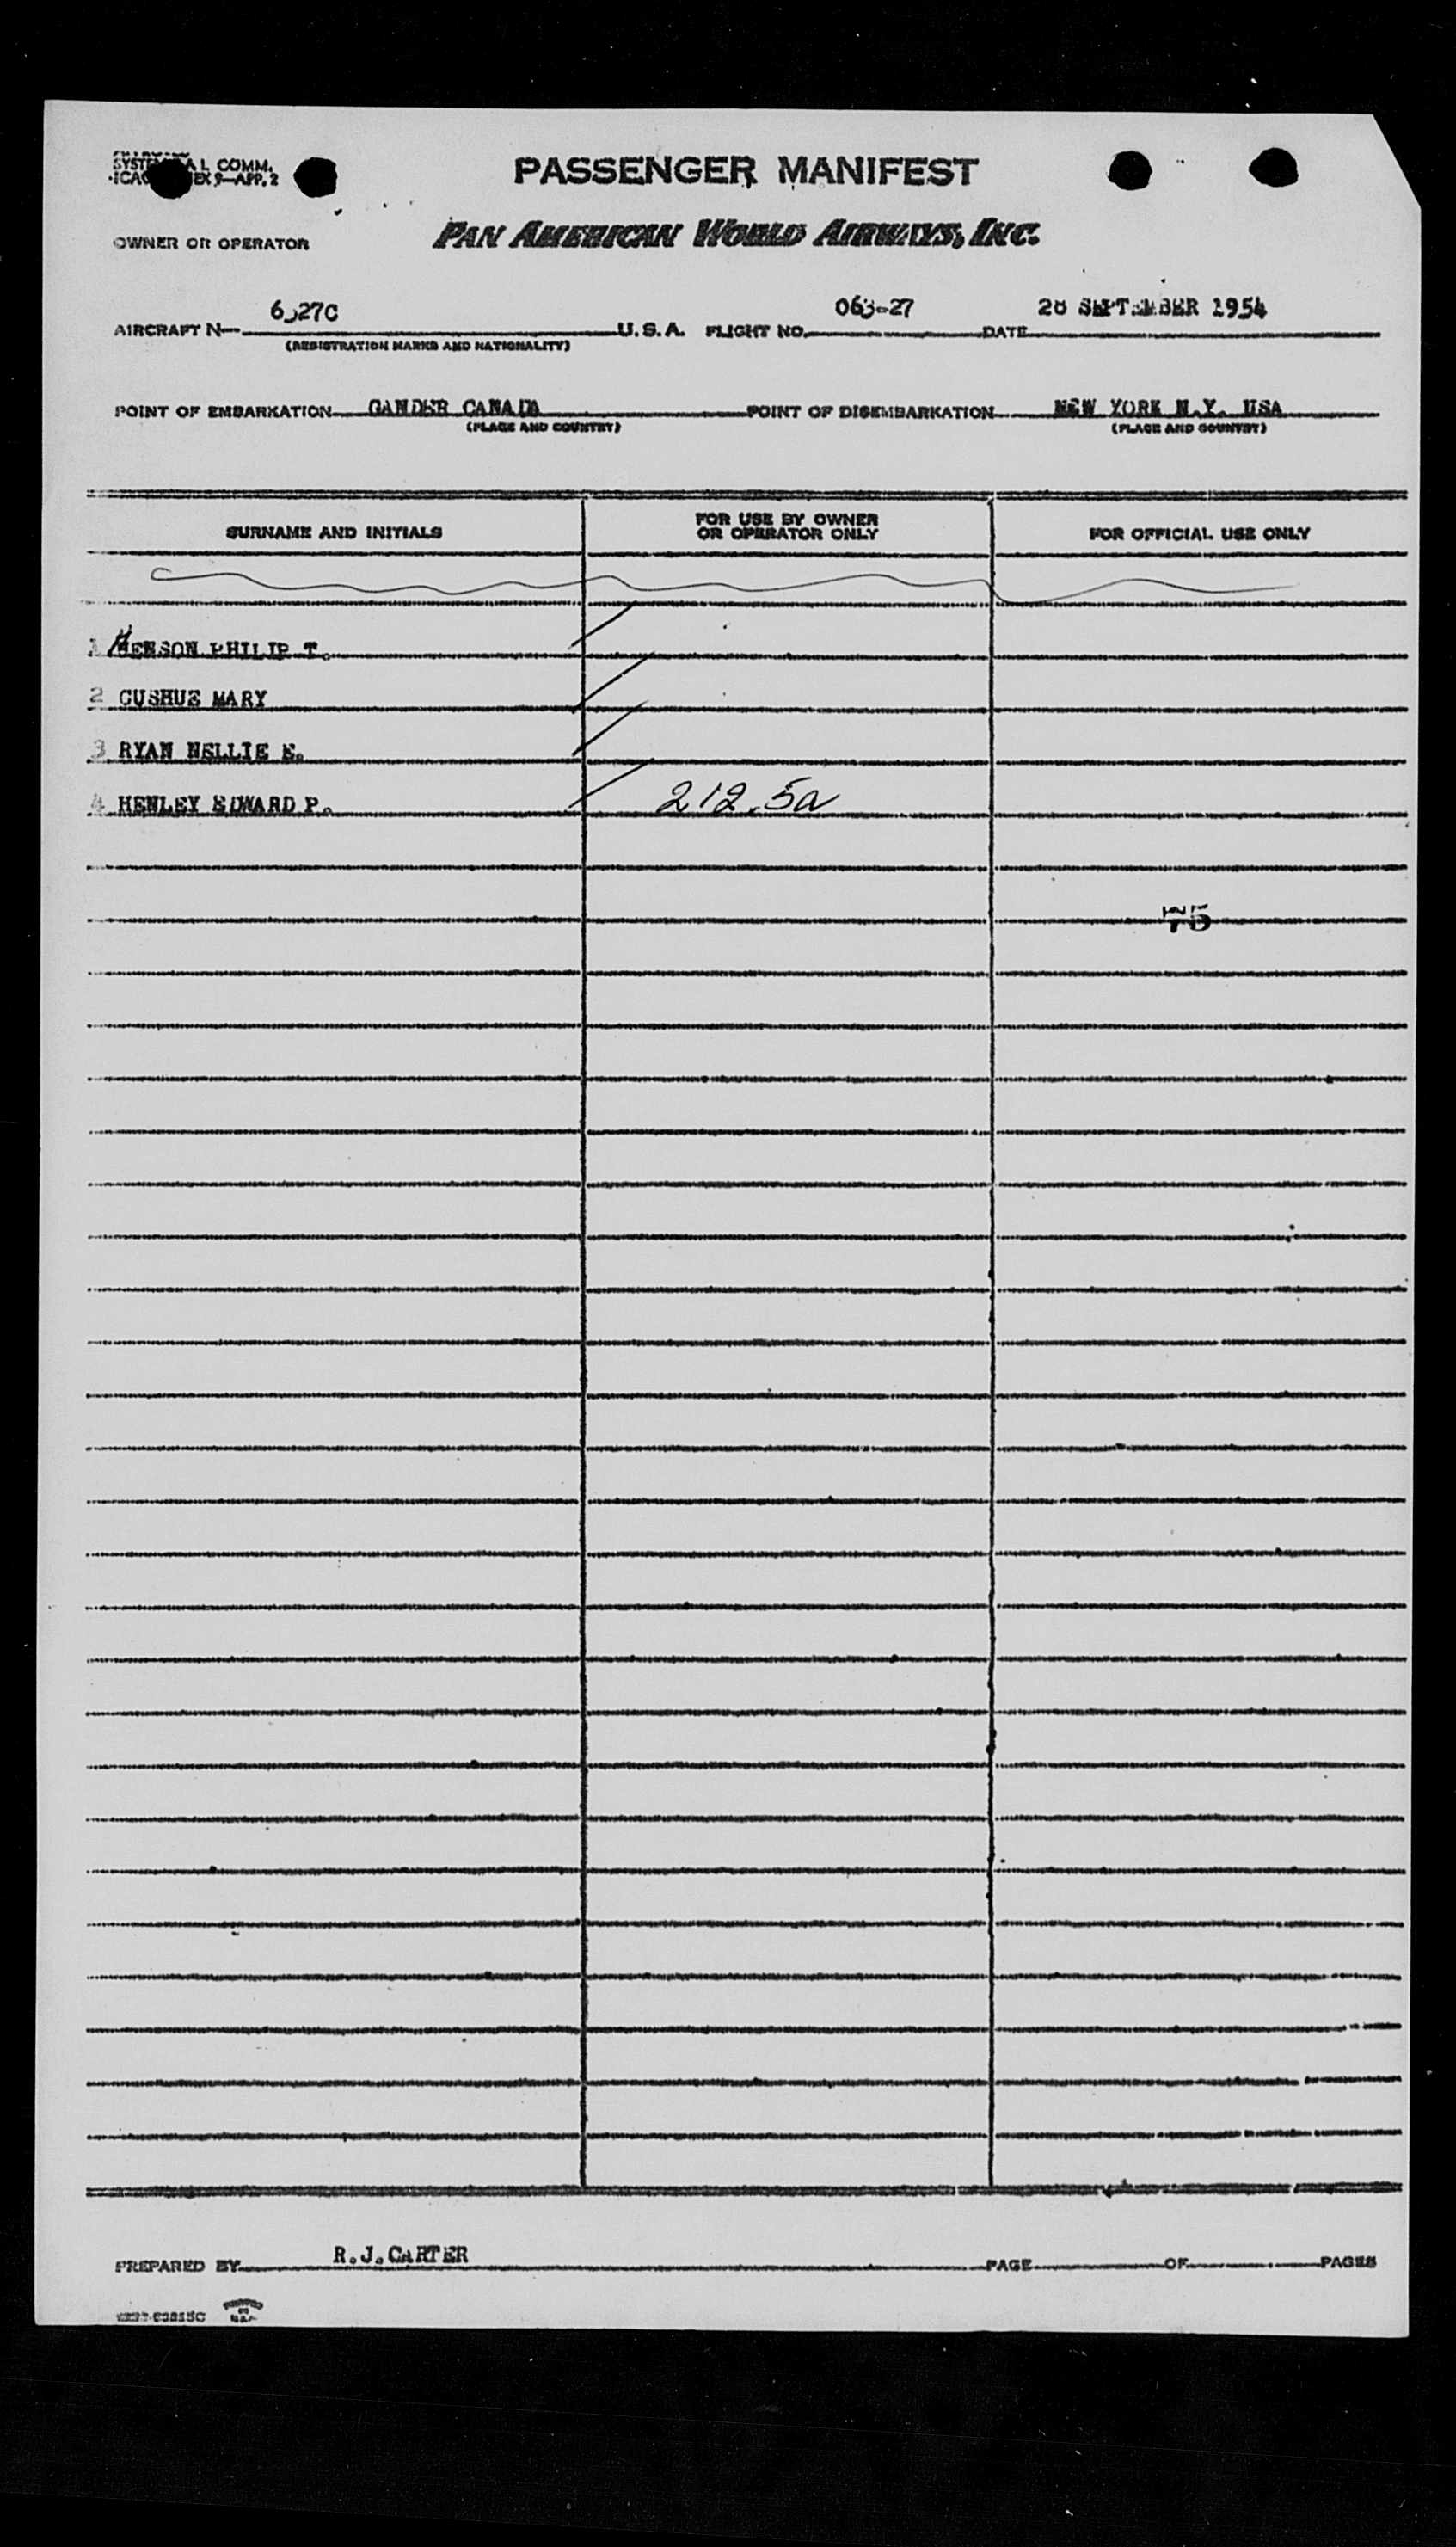 SYSTE A L COMM.
ICAO EX 9—APP. 2
PASSENGER MANIFEST
OWNER OR OPERATOR PAN AMERICAN WORLD AIRWAYS, INC.
AIRCRAFT N— U. S. A. FLIGHT NO. 063-27 DATE 28 SEPTEMBER 1954
(REGISTRATION MARKS AND NATIONALITY)
POINT OF EMBARKATION GANDER CANADA POINT OF DISEMBARKATION NEW YORK N.Y. USA
(PLACE AND COUNTRY) (PLACE AND COUNTRY)
SURNAME AND INITIALS FOR USE BY OWNER OR OPERATOR ONLY FOR OFFICIAL USE ONLY
1 HENSON PHILIP T.
2 CUSHUE MARY
3 RYAN NELLIE E.
4 HENLEY EDWARD P. 212.5a
75
PREPARED BY R.J.CARTER PAGE OF PAGES